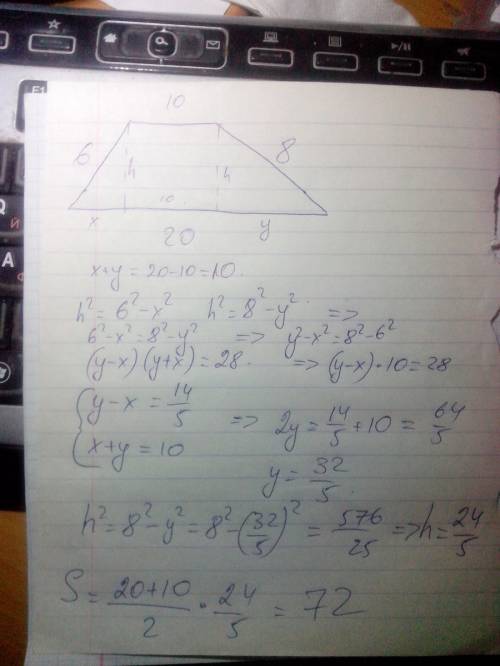 F1
Q
Й
A
10
6
h
h
8
x
10
y
20
x+y = 20-10=10.
h²= 6²-x² h²= 8²-y² =>
6²-x²=8²-y² => y²-x²=8²-6²
(y-x)(y+x)=28. => (y-x)•10=28
{ y-x = 14/5
x+y = 10 => 2y= 14/5 +10 = 64/5
y= 32/5.
h²=8²-y²=8²-(32/5)² = 576/25 =>h= 24/5
S= (20+10)/2 • 24/5 = 72